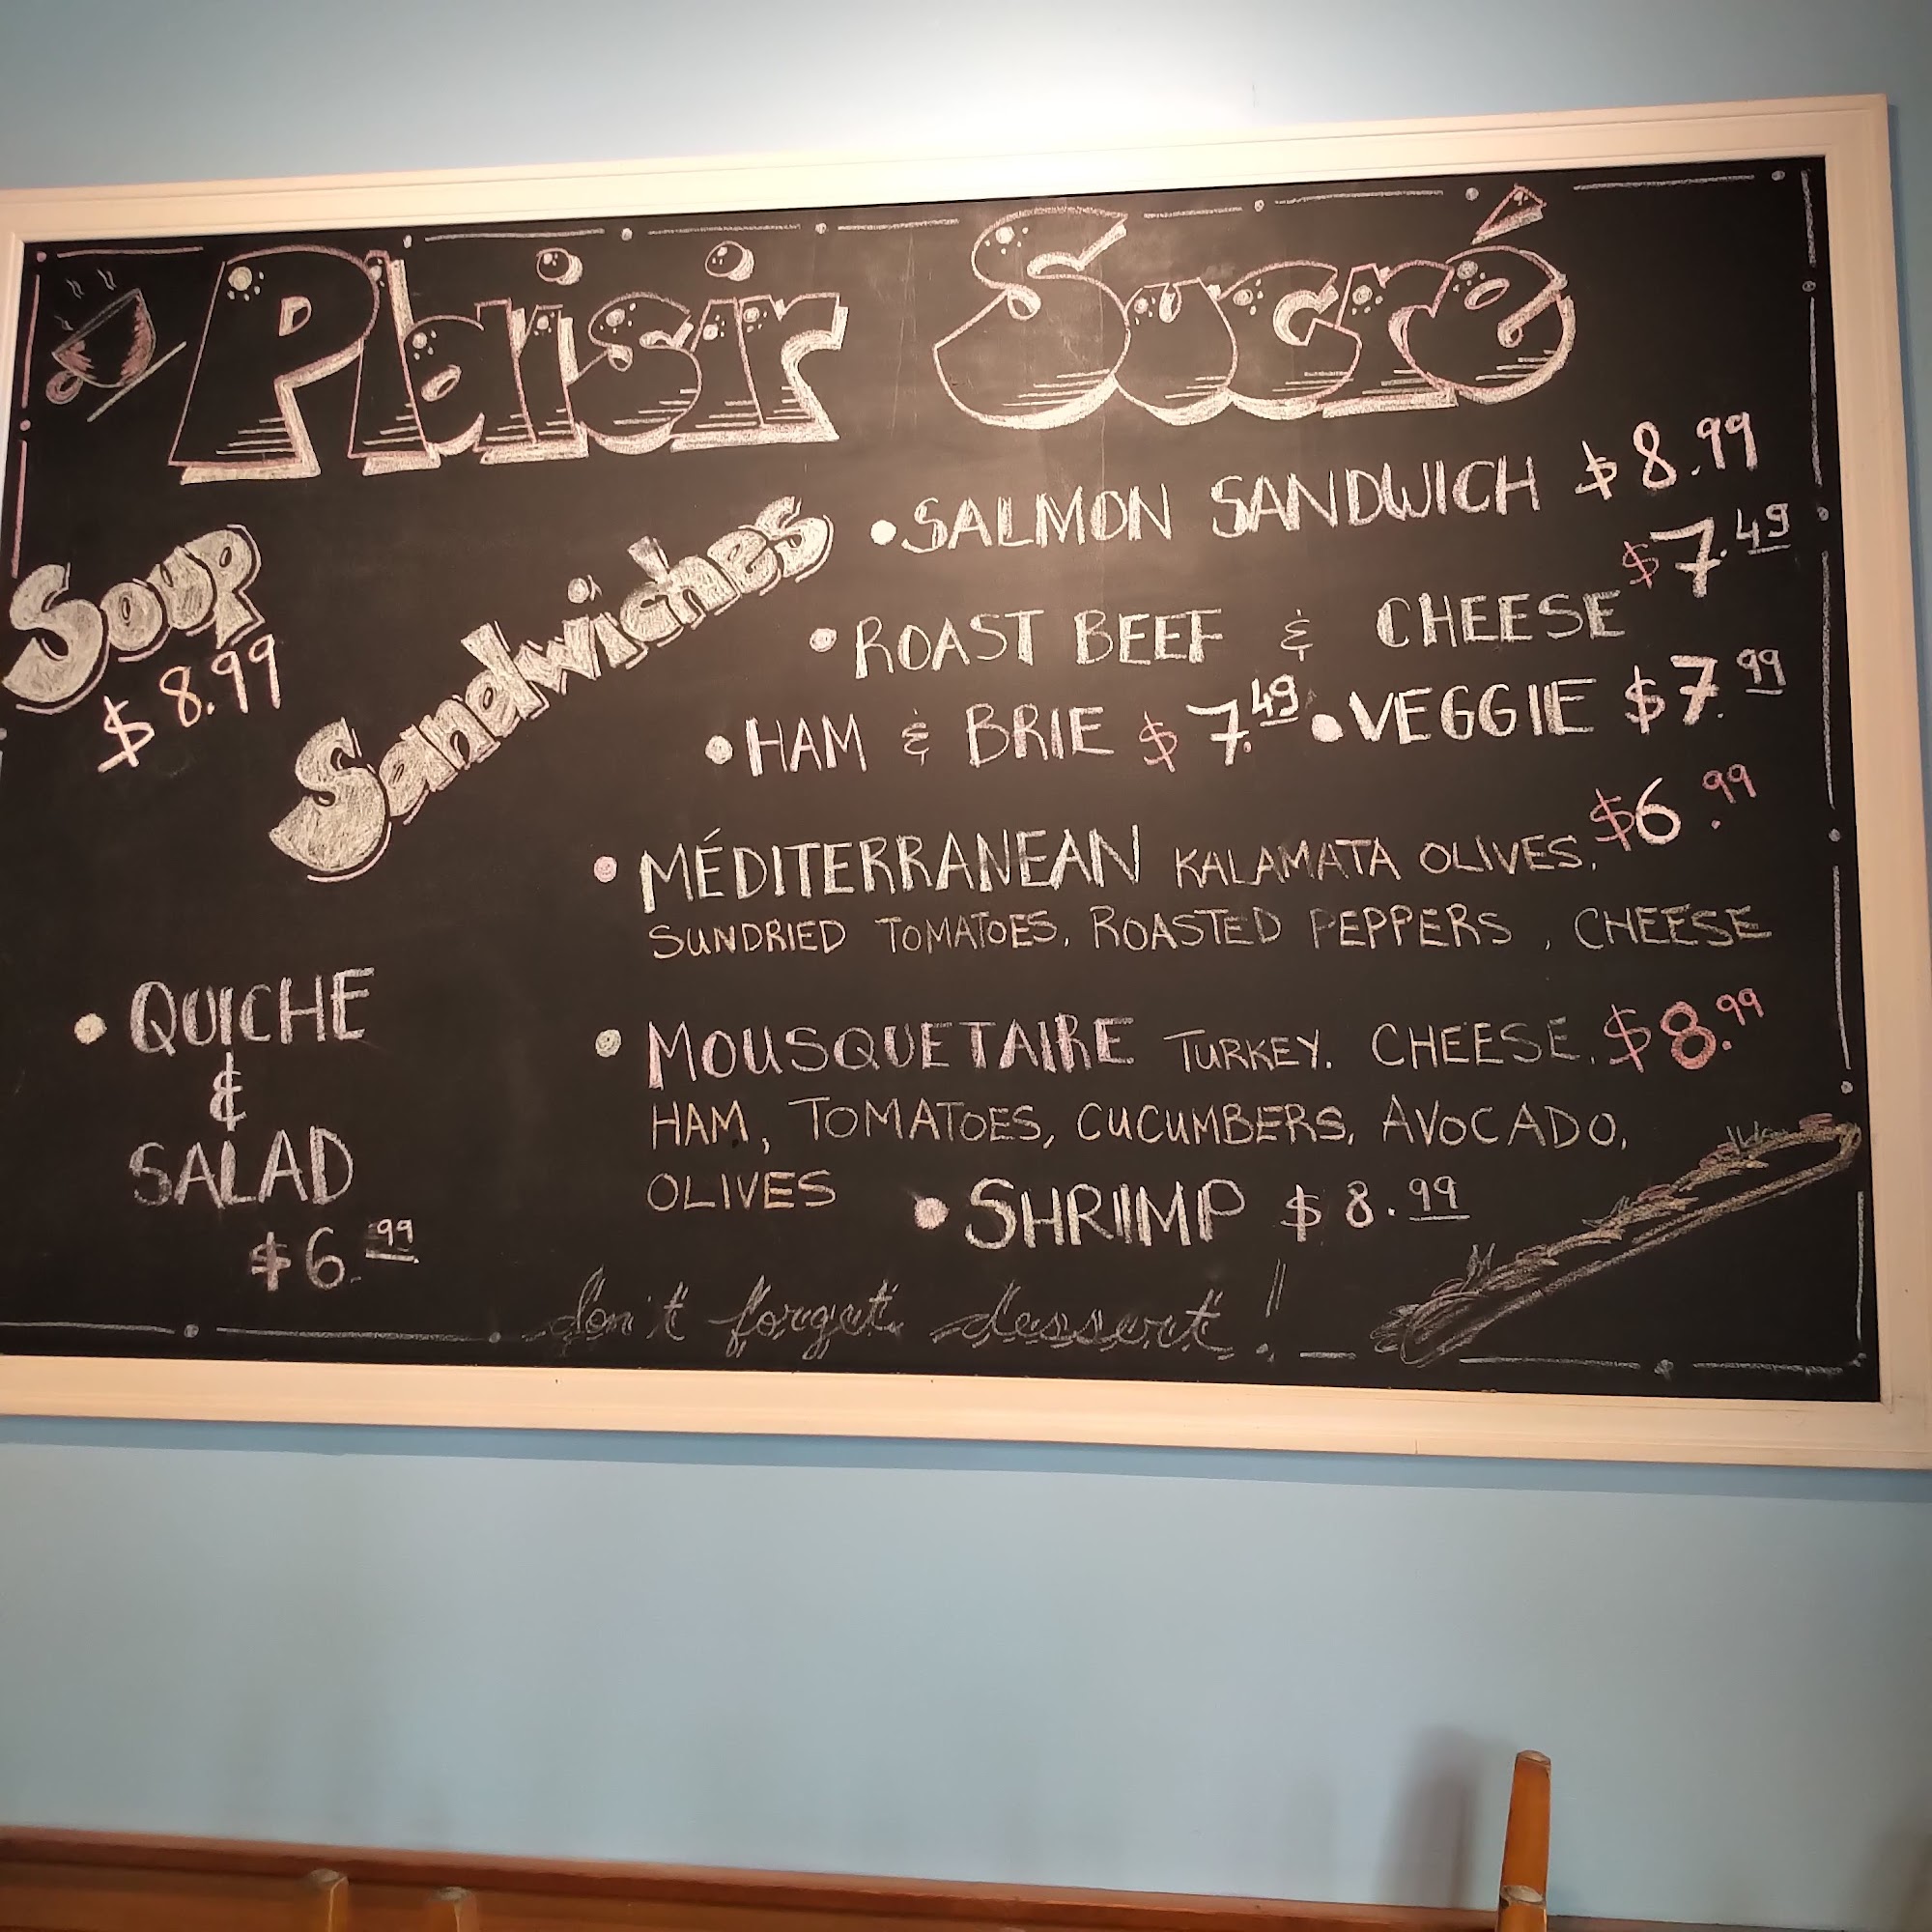 Plaisir Sucré
Soup
$8.99
Sandwiches
• SALMON SANDWICH $8.99
• ROAST BEEF & CHEESE $7.49
• HAM & BRIE $7.49 • VEGGIE $7.99
• MÉDITERRANEAN KALAMATA OLIVES, $6.99
SUNDRIED TOMATOES, ROASTED PEPPERS, CHEESE
• MOUSQUETAIRE TURKEY. CHEESE, $8.99
HAM, TOMATOES, CUCUMBERS, AVOCADO,
OLIVES • SHRIMP $8.99
• QUICHE
&
SALAD
$6.99
don't forget dessert!!